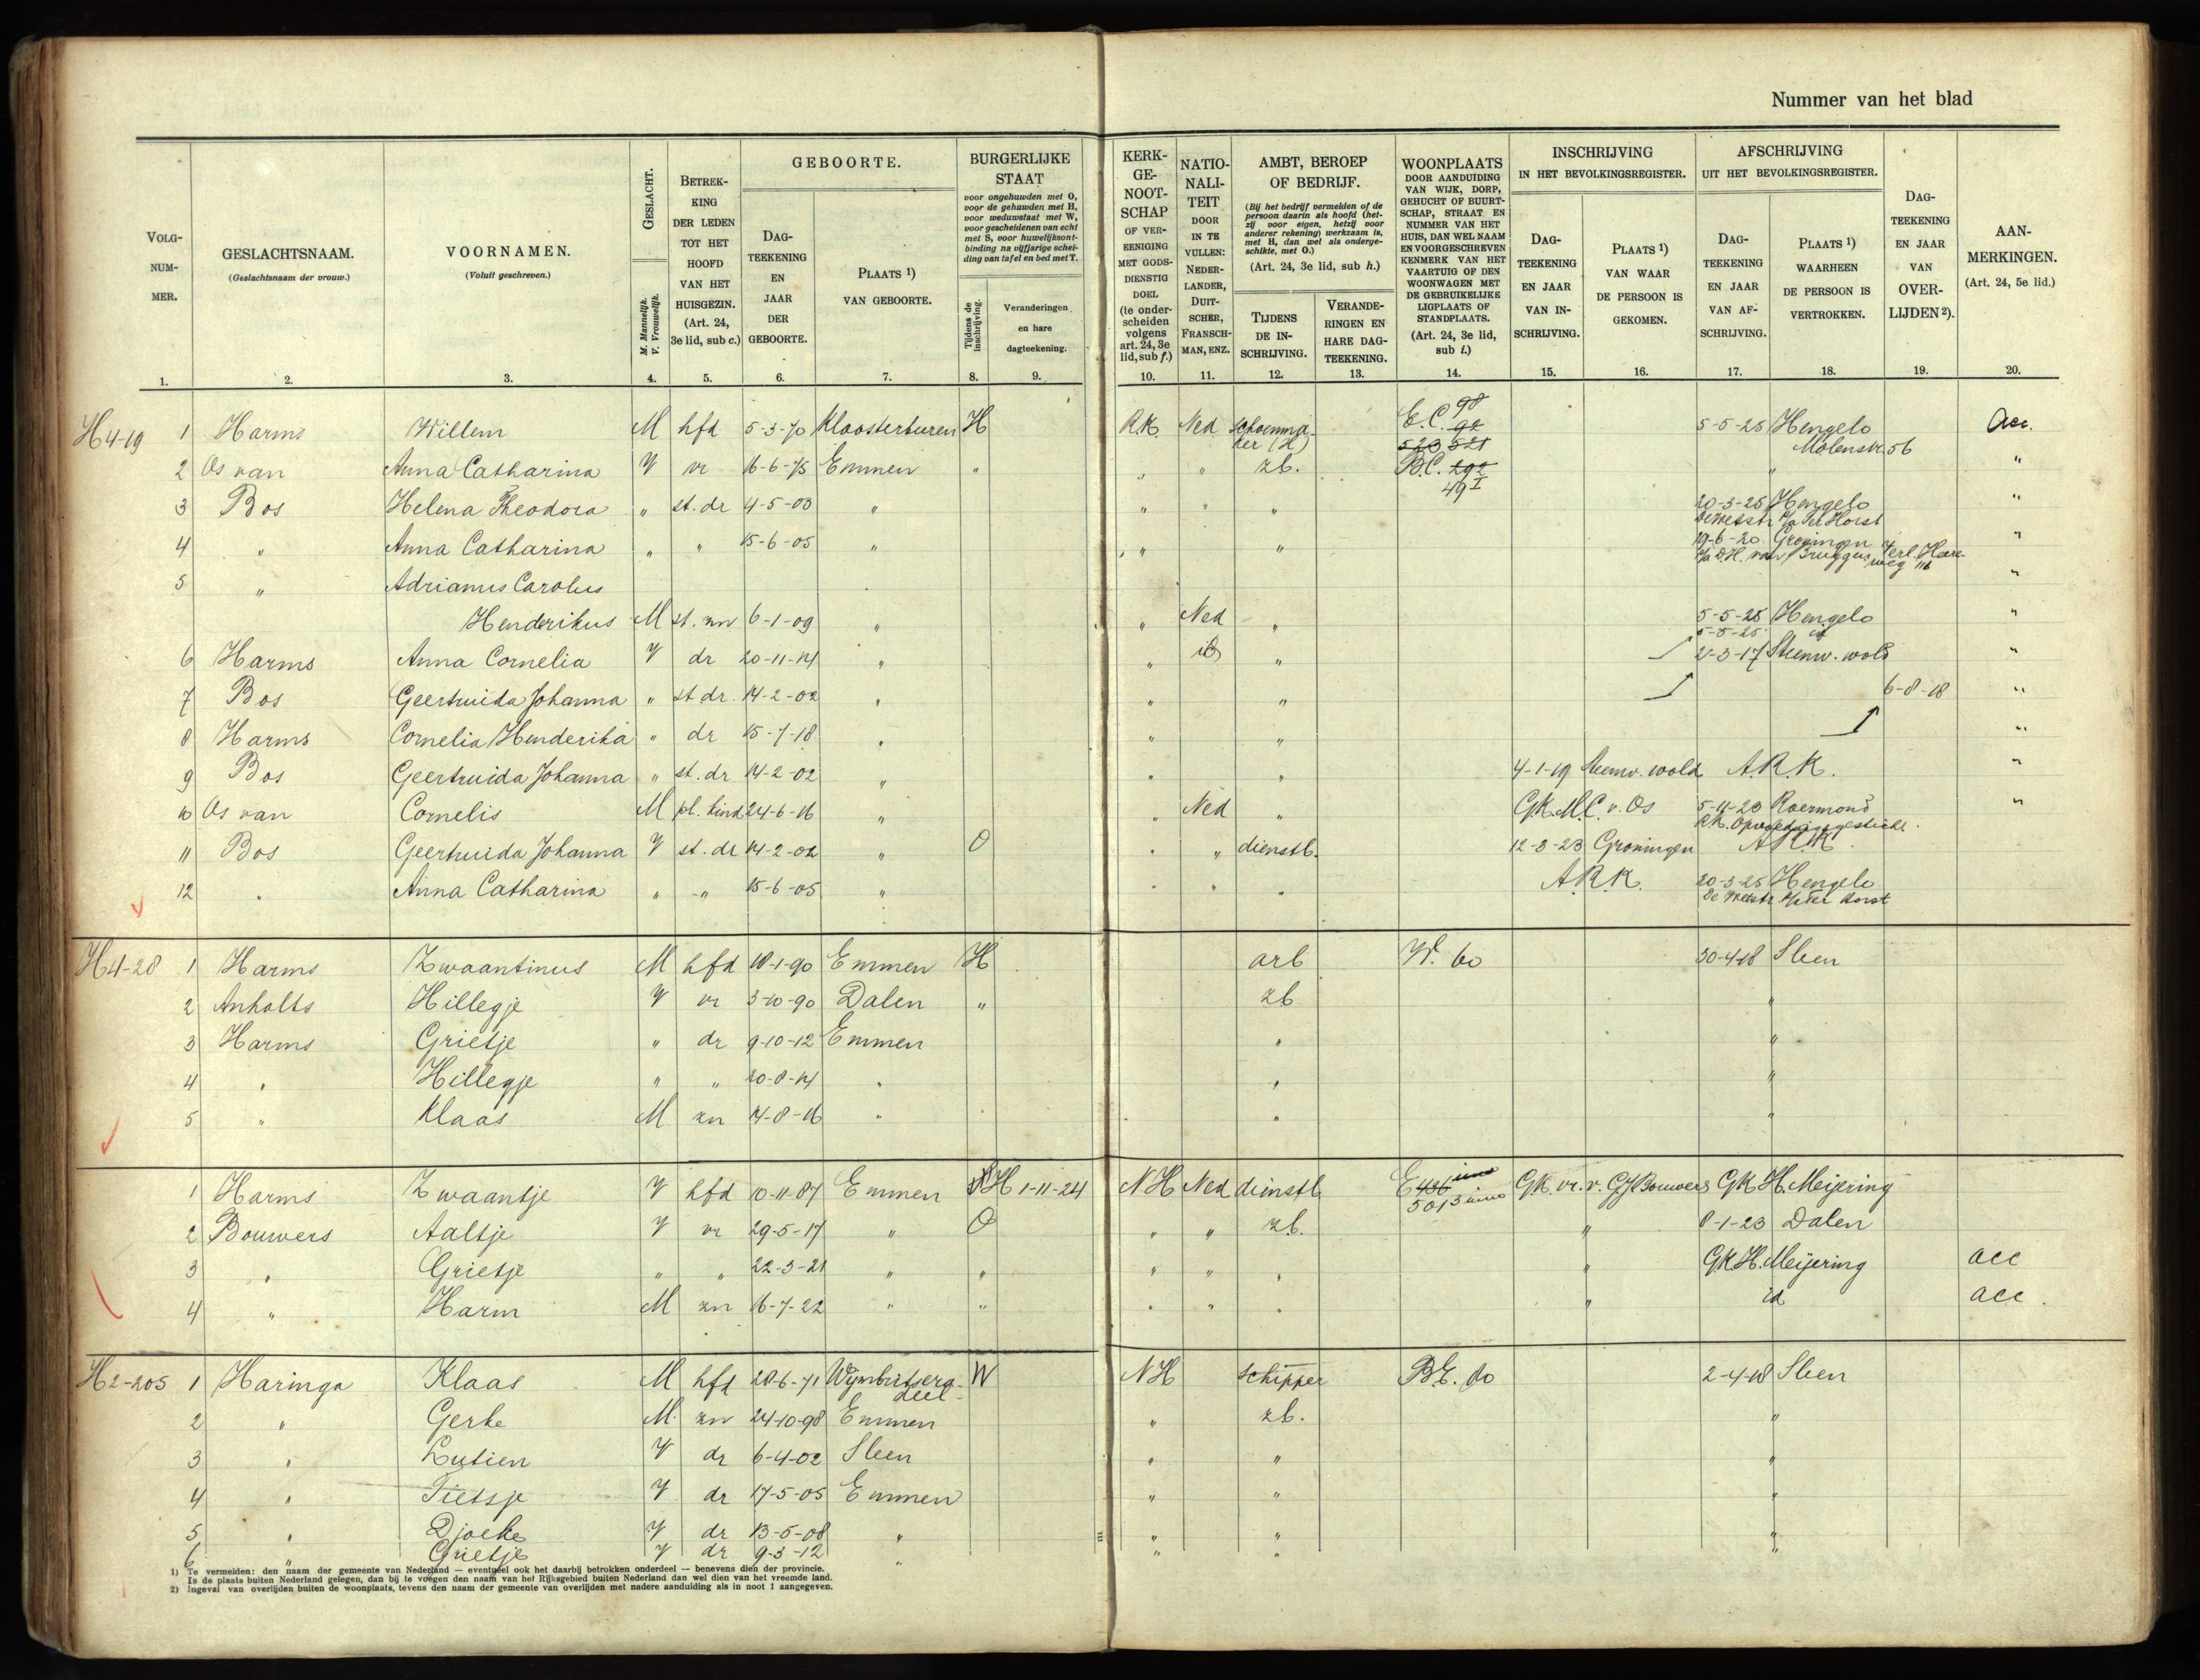 Nummer van het blad
VOLG-NUM-MER.
GESLACHTSNAAM.
(Geslachtsnaam der vrouw.)
VOORNAMEN.
(Voluit geschreven.)
GESLACHT.
M. Mannelijk.
V. Vrouwelijk.
BETREK-KING DER LEDEN TOT HET HOOFD VAN HET HUISGEZIN.
(Art. 24, 3e lid, sub c.)
GEBOORTE.
DAG-TEEKENING EN JAAR DER GEBOORTE.
PLAATS 1) VAN GEBOORTE.
BURGERLIJKE STAAT
voor ongehuwden met O,
voor de gehuwden met H,
voor weduwstaat met W,
voor gescheidenen van echt
met S, voor huwelijksont-
binding na vijfjarige schei-
ding van tafel en bed met T.
Tijdens de inschrijving.
Veranderingen en hare dagteekening.
KERK-GE-NOOT-SCHAP OF VER-EENIGING MET GODS-DIENSTIG DOEL
(te onder-scheiden volgens art. 24, 3e lid, sub f.)
NATIO-NALI-TEIT DOOR IN TE VULLEN: NEDER-LANDER, DUIT-SCHER, FRANSCH-MAN, ENZ.
AMBT, BEROEP OF BEDRIJF.
(Bij het bedrijf vermelden of de
persoon daarin als hoofd (het-
zij voor eigen, hetzij voor
anderer rekening) werkzaam is,
met H, dan wel als onderge-
schikte, met O.)
(Art. 24, 3e lid, sub h.)
TIJDENS DE IN-SCHRIJVING.
VERANDE-RINGEN EN HARE DAG-TEEKENING.
WOONPLAATS
DOOR AANDUIDING
VAN WIJK, DORP,
GEHUCHT OF BUURT-
SCHAP, STRAAT EN
NUMMER VAN HET
HUIS, DAN WEL NAAM
EN VOORGESCHREVEN
KENMERK VAN HET
VAARTUIG OF DEN
WOONWAGEN MET
DE GEBRUIKELIJKE
LIGPLAATS OF
STANDPLAATS.
(Art. 24, 3e lid, sub i.)
INSCHRIJVING
IN HET BEVOLKINGSREGISTER.
DAG-TEEKENING EN JAAR VAN IN-SCHRIJVING.
PLAATS 1) VAN WAAR DE PERSOON IS GEKOMEN.
AFSCHRIJVING
UIT HET BEVOLKINGSREGISTER.
DAG-TEEKENING EN JAAR VAN AF-SCHRIJVING.
PLAATS 1) WAARHEEN DE PERSOON IS VERTROKKEN.
DAG-TEEKENING EN JAAR VAN OVER-LIJDEN 2).
AAN-MERKINGEN.
(Art. 24, 5e lid.)
1. 2. 3. 4. 5. 6. 7. 8. 9. 10. 11. 12. 13. 14. 15. 16. 17. 18. 19. 20.
H4-19 1 Harms Willem M hfd 5-3-70 Kloosterburen H R.K. Ned Schoenma- E.C. 98 92 5-5-25 Hengelo Acc.
ker (H) 523 521 Molenstr. 56
2 Os van Anna Catharina V vr 16-6-75 Emmen " " " zb. B.C. 292 " "
49 I
3 Bos Helena Theodora " st. dr 4-5-03 " " " " 20-3-25 Hengelo "
Dewetstr P/a Ter Horst
4 " Anna Catharina " " 15-6-05 " " " 19-6-20 Groningen "
P/a D.H. van Bruggen, Verl. Heere-
weg 116
5 " Adrianus Carolus "
Henderikus M st. zn 6-1-09 " " Ned " 5-5-25 Hengelo "
5-5-25 id
6 Harms Anna Cornelia V dr 20-11-14 " " id " 21-3-17 Steenw. wold "
7 Bos Geertruida Johanna " st dr. 14-2-02 " " " 6-8-18 "
8 Harms Cornelia Henderika " dr 15-7-18 " " " "
9 Bos Geertruida Johanna " st. dr 14-2-02 " " " 4-1-19 Steenw. wold A.R.K. "
10 Os van Cornelis M pl. kind 24-6-16 " " Ned " GK. M.C. v. Os 5-11-23 Roermond "
R.K. Opvoedingsgesticht.
11 Bos Geertruida Johanna V st. dr 14-2-02 " O " " dienstb. 12-3-23 Groningen A.R.K.
12 " Anna Catharina " " 15-6-05 " " " " A.R.K. 20-3-25 Hengelo
De Wetstr. P/a Ter Horst
H4-28 1 Harms Zwaantinus M hfd 18-1-90 Emmen H arb W. 60 30-4-18 Sleen
2 Anholts Hillegje V vr 3-10-90 Dalen " zb "
3 Harms Grietje " dr 9-10-12 Emmen " "
4 " Hillegje " " 20-8-14 " " "
5 " Klaas M zn 4-8-16 " " "
1 Harms Zwaantje V hfd 10-11-87 Emmen H 1-11-24 NH Ned dienstb E 436 GK. vr. v. GJ Bouwers GK H. Meijering
5013
2 Bouwers Aaltje V vr 29-5-17 " O " " zb. " 8-1-23 Dalen
3 " Grietje " " 22-3-21 " " " " " " GK H. Meijering acc
4 " Harm M zn 16-7-22 " " " " " " id acc.
H2-205 1 Haringa Klaas M hfd 28-6-71 Wijmbritsera- W NH schipper B.E. 80 2-4-18 Sleen
deel
2 " Gerke M. zn 24-10-98 Emmen " zb. "
3 " Lutien V dr 6-4-02 Sleen " " "
4 " Tietsje V dr 17-5-05 Emmen " " "
5 " Djoeke V dr 13-5-08 " " " "
6 " Grietje V dr 9-3-12 " " " "
1) Te vermelden: den naam der gemeente van Nederland — eventueel ook het daarbij betrokken onderdeel — benevens dien der provincie.
Is de plaats buiten Nederland gelegen, dan bij te voegen den naam van het Rijksgebied buiten Nederland dan wel dien van het vreemde land.
2) Ingeval van overlijden buiten de woonplaats, tevens den naam der gemeente van overlijden met nadere aanduiding als in noot 1 aangegeven.